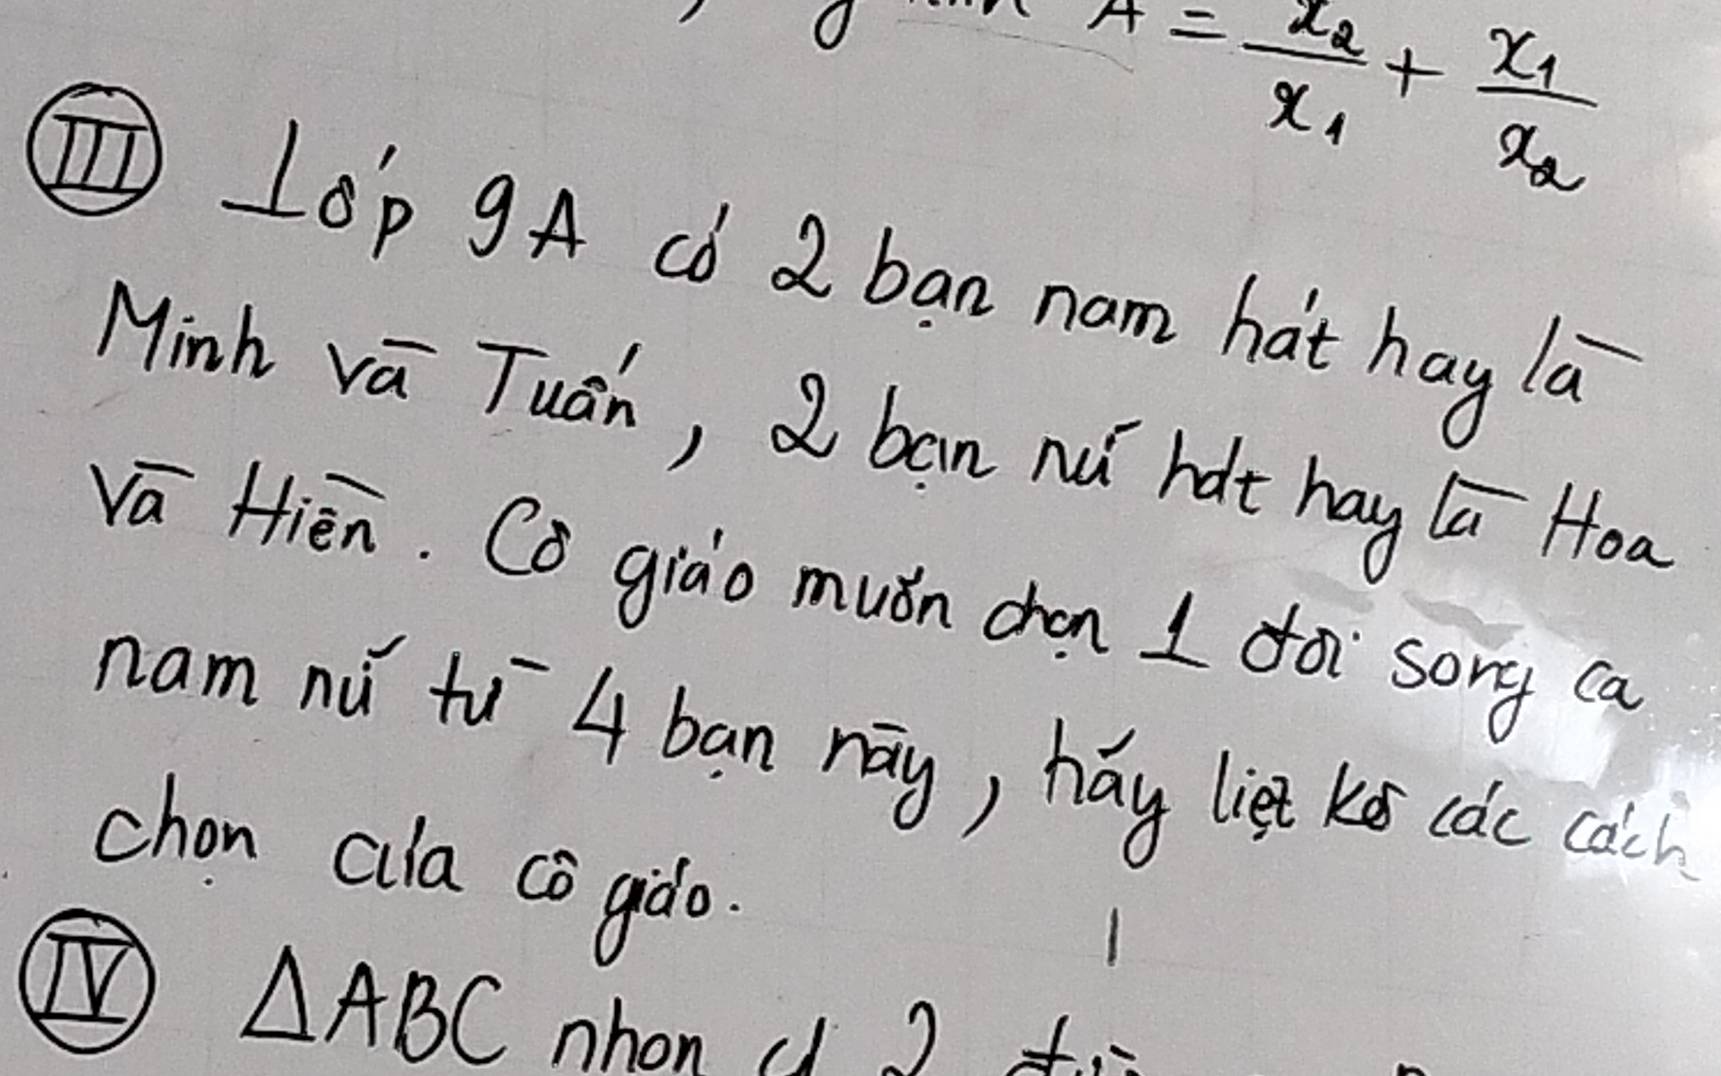 A = x₂/x₁ + x₁/x₂
III Lớp 9A có 2 bạn nam hát hay là
Minh và Tuấn, 2 bạn nữ hát hay là Hoa
và Hiền. Cô giáo muốn chọn 1 đôi song ca
nam nữ từ 4 bạn này, hãy liệt kê các cách
chọn của cô giáo.
IV ΔABC nhọn 2